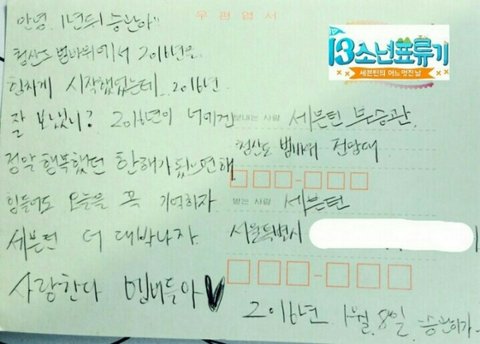 우편엽서
13소년표류기
세븐틴의 어느 멋진 날
안녕. 1년뒤 승관아
청산도 범바위에서 2016년을
힘차게 시작했었는데 2016년
잘 보냈니? 2016년이 너에겐
정말 행복했던 한해가 됐으면해
힘들어도 오늘을 꼭 기억하자
세븐틴 더 대박나자
사랑한다 멤버들아
보내는 사람 세븐틴 부승관
청산도 범바위 전망대
받는 사람 세븐틴
서울특별시
2016년 1월 8일 승관이가.